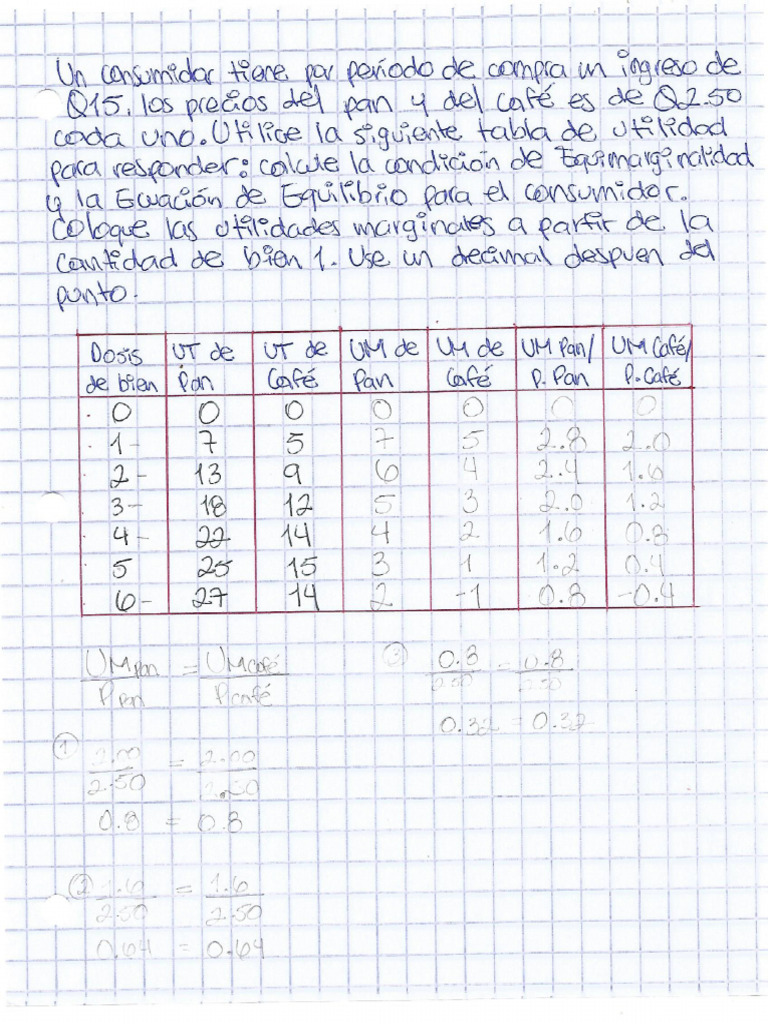 Un consumidor tiene por período de compra un ingreso de
Q15, los precios del pan y del café es de Q2.50
cada uno. Utilice la siguiente tabla de utilidad
para responder: calcule la condición de Equimarginalidad
y la Ecuación de Equilibrio para el consumidor.
Coloque las utilidades marginales a partir de la
cantidad de bien 1. Use un decimal despuen del
punto.
Dosis de bien | UT de pan | UT de Café | UM de Pan | UM de Café | UM Pan/ P. Pan | UM Café/ P. Café
0 0 0 0 0 0 0
1- 7 5 7 5 2.8 2.0
2- 13 9 6 4 2.4 1.6
3- 18 12 5 3 2.0 1.2
4- 22 14 4 2 1.6 0.8
5 25 15 3 1 1.2 0.4
6- 27 14 2 -1 0.8 -0.4
UM pan / P pan = UM café / P café
① 2.00/2.50 = 2.00/2.50
0.8 = 0.8
② 1.6/2.50 = 1.6/2.50
0.64 = 0.64
③ 0.8/2.50 = 0.8/2.50
0.32 = 0.32